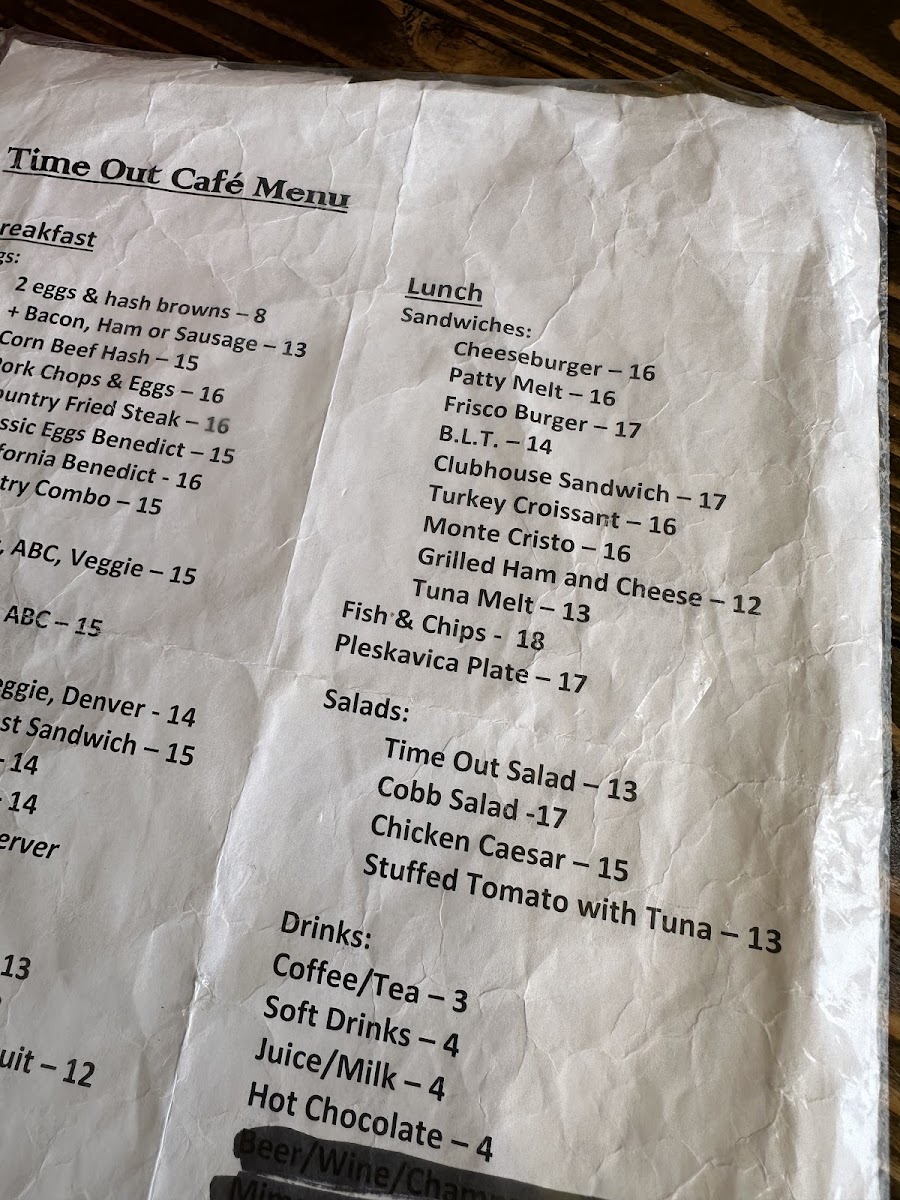 Time Out Café Menu
reakfast
gs:
2 eggs & hash browns – 8
+ Bacon, Ham or Sausage – 13
Corn Beef Hash – 15
ork Chops & Eggs – 16
ountry Fried Steak – 16
ssic Eggs Benedict – 15
fornia Benedict - 16
try Combo – 15
, ABC, Veggie – 15
ABC – 15
eggie, Denver - 14
st Sandwich – 15
- 14
- 14
erver
13
uit – 12
Lunch
Sandwiches:
Cheeseburger – 16
Patty Melt – 16
Frisco Burger – 17
B.L.T. – 14
Clubhouse Sandwich – 17
Turkey Croissant – 16
Monte Cristo – 16
Grilled Ham and Cheese – 12
Tuna Melt – 13
Fish & Chips - 18
Pleskavica Plate – 17
Salads:
Time Out Salad – 13
Cobb Salad -17
Chicken Caesar – 15
Stuffed Tomato with Tuna – 13
Drinks:
Coffee/Tea – 3
Soft Drinks – 4
Juice/Milk – 4
Hot Chocolate – 4
Beer/Wine/Cham
Mim